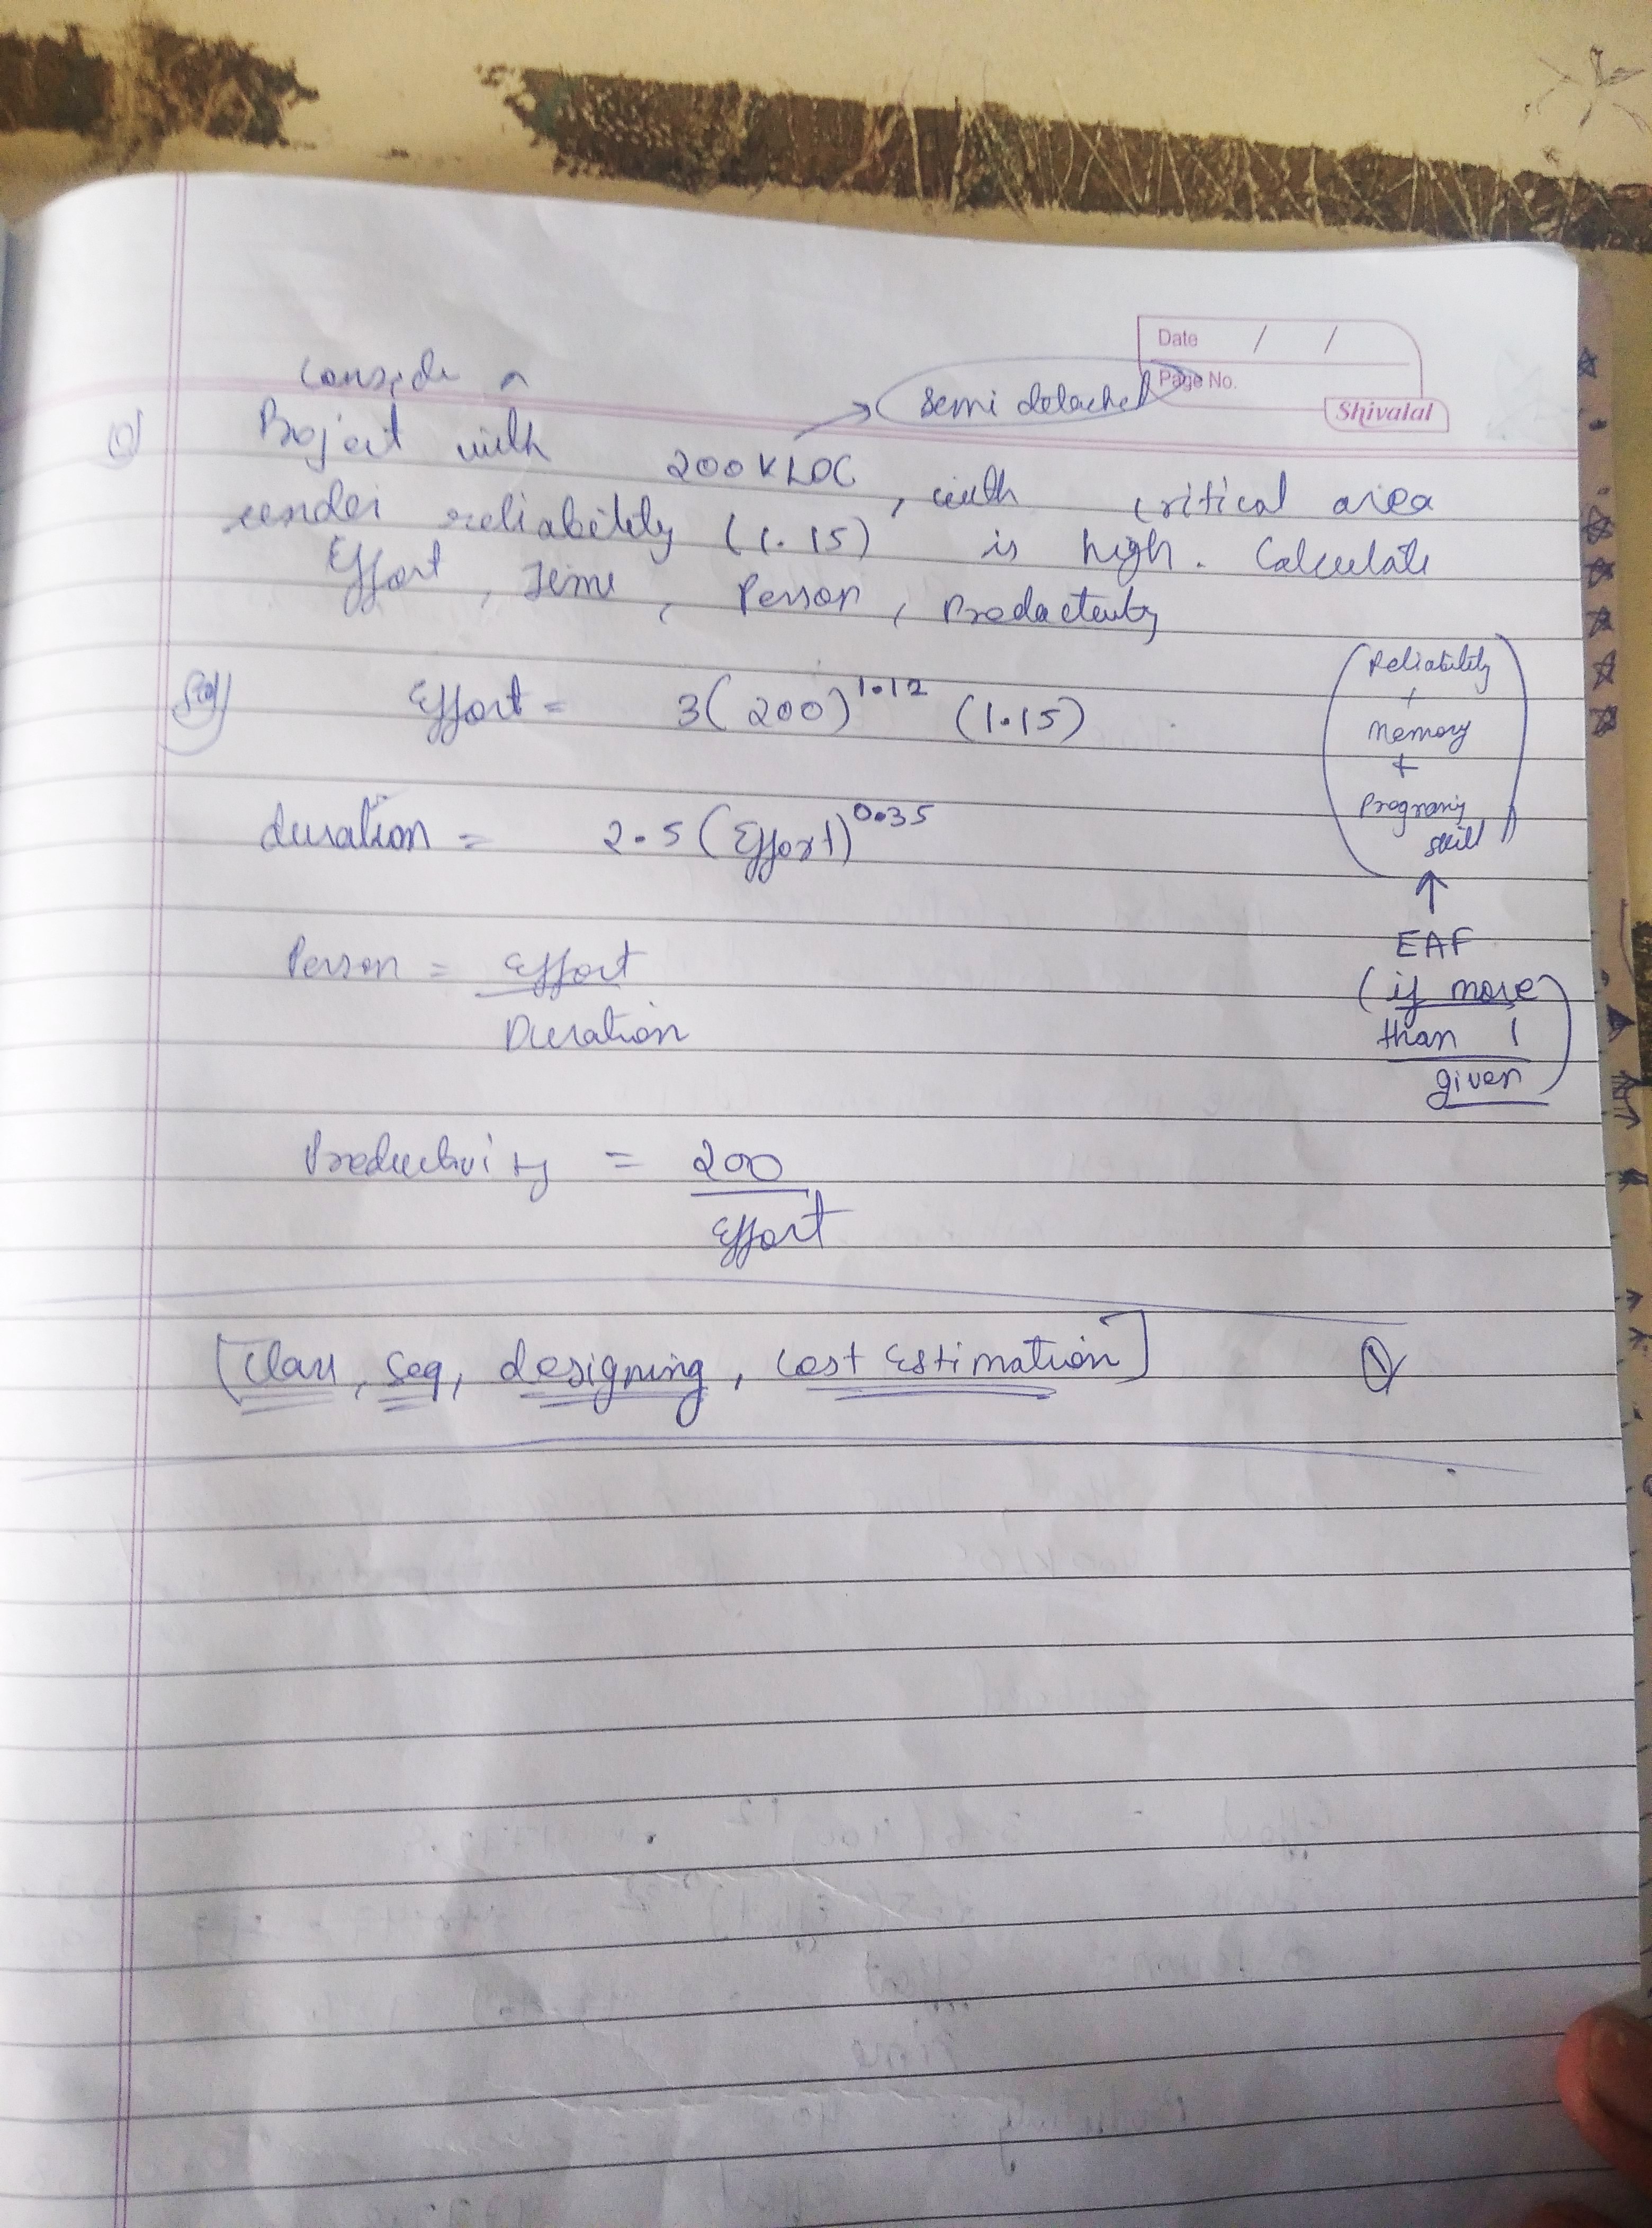 Date / /
Page No.
Shivalal
Conside a
Q) Project with 200 KLOC → semi detached
, with critical area
under reliability (1.15) is high. Calculate
Effort, Time, Person, Productivity
Sol) Effort = 3(200)^1.12 (1.15)
duration = 2.5 (Effort)^0.35
Person = Effort
Duration
Productivity = 200
Effort
(Reliability
+
Memory
+
Programing
skill)
↑
EAF
(if more
than 1
given)
[Class, Seq, designing, Cost Estimation]